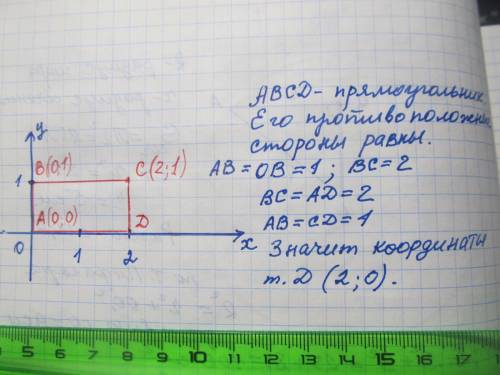 ABCD - прямоугольник.
Его противоположные
стороны равны.
AB = OB = 1 ; BC = 2
BC = AD = 2
AB = CD = 1
Значит координаты
т. D (2; 0).
y
B(0,1)
C(2;1)
1
A(0,0)
D
0
1
2
x
5 6 7 8 9 10 11 12 13 14 15 16 17